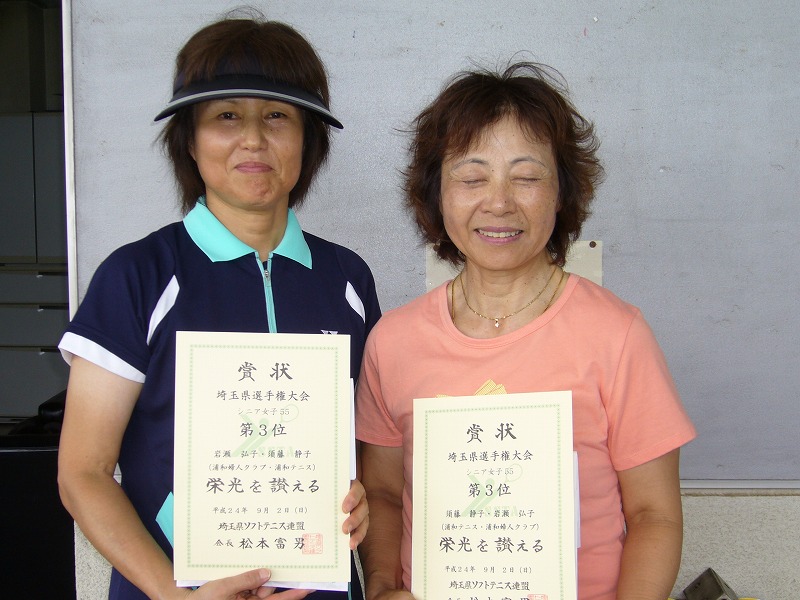 賞状
埼玉県選手権大会
シニア女子55
第3位
岩瀬 弘子・須藤 静子
(浦和婦人クラブ・浦和テニス)
栄光を讃える
平成24年 9月 2日(日)
埼玉県ソフトテニス連盟
会長 松本富男
賞状
埼玉県選手権大会
シニア女子55
第3位
須藤 静子・岩瀬 弘子
(浦和テニス・浦和婦人クラブ)
栄光を讃える
平成24年 9月 2日(日)
埼玉県ソフトテニス連盟